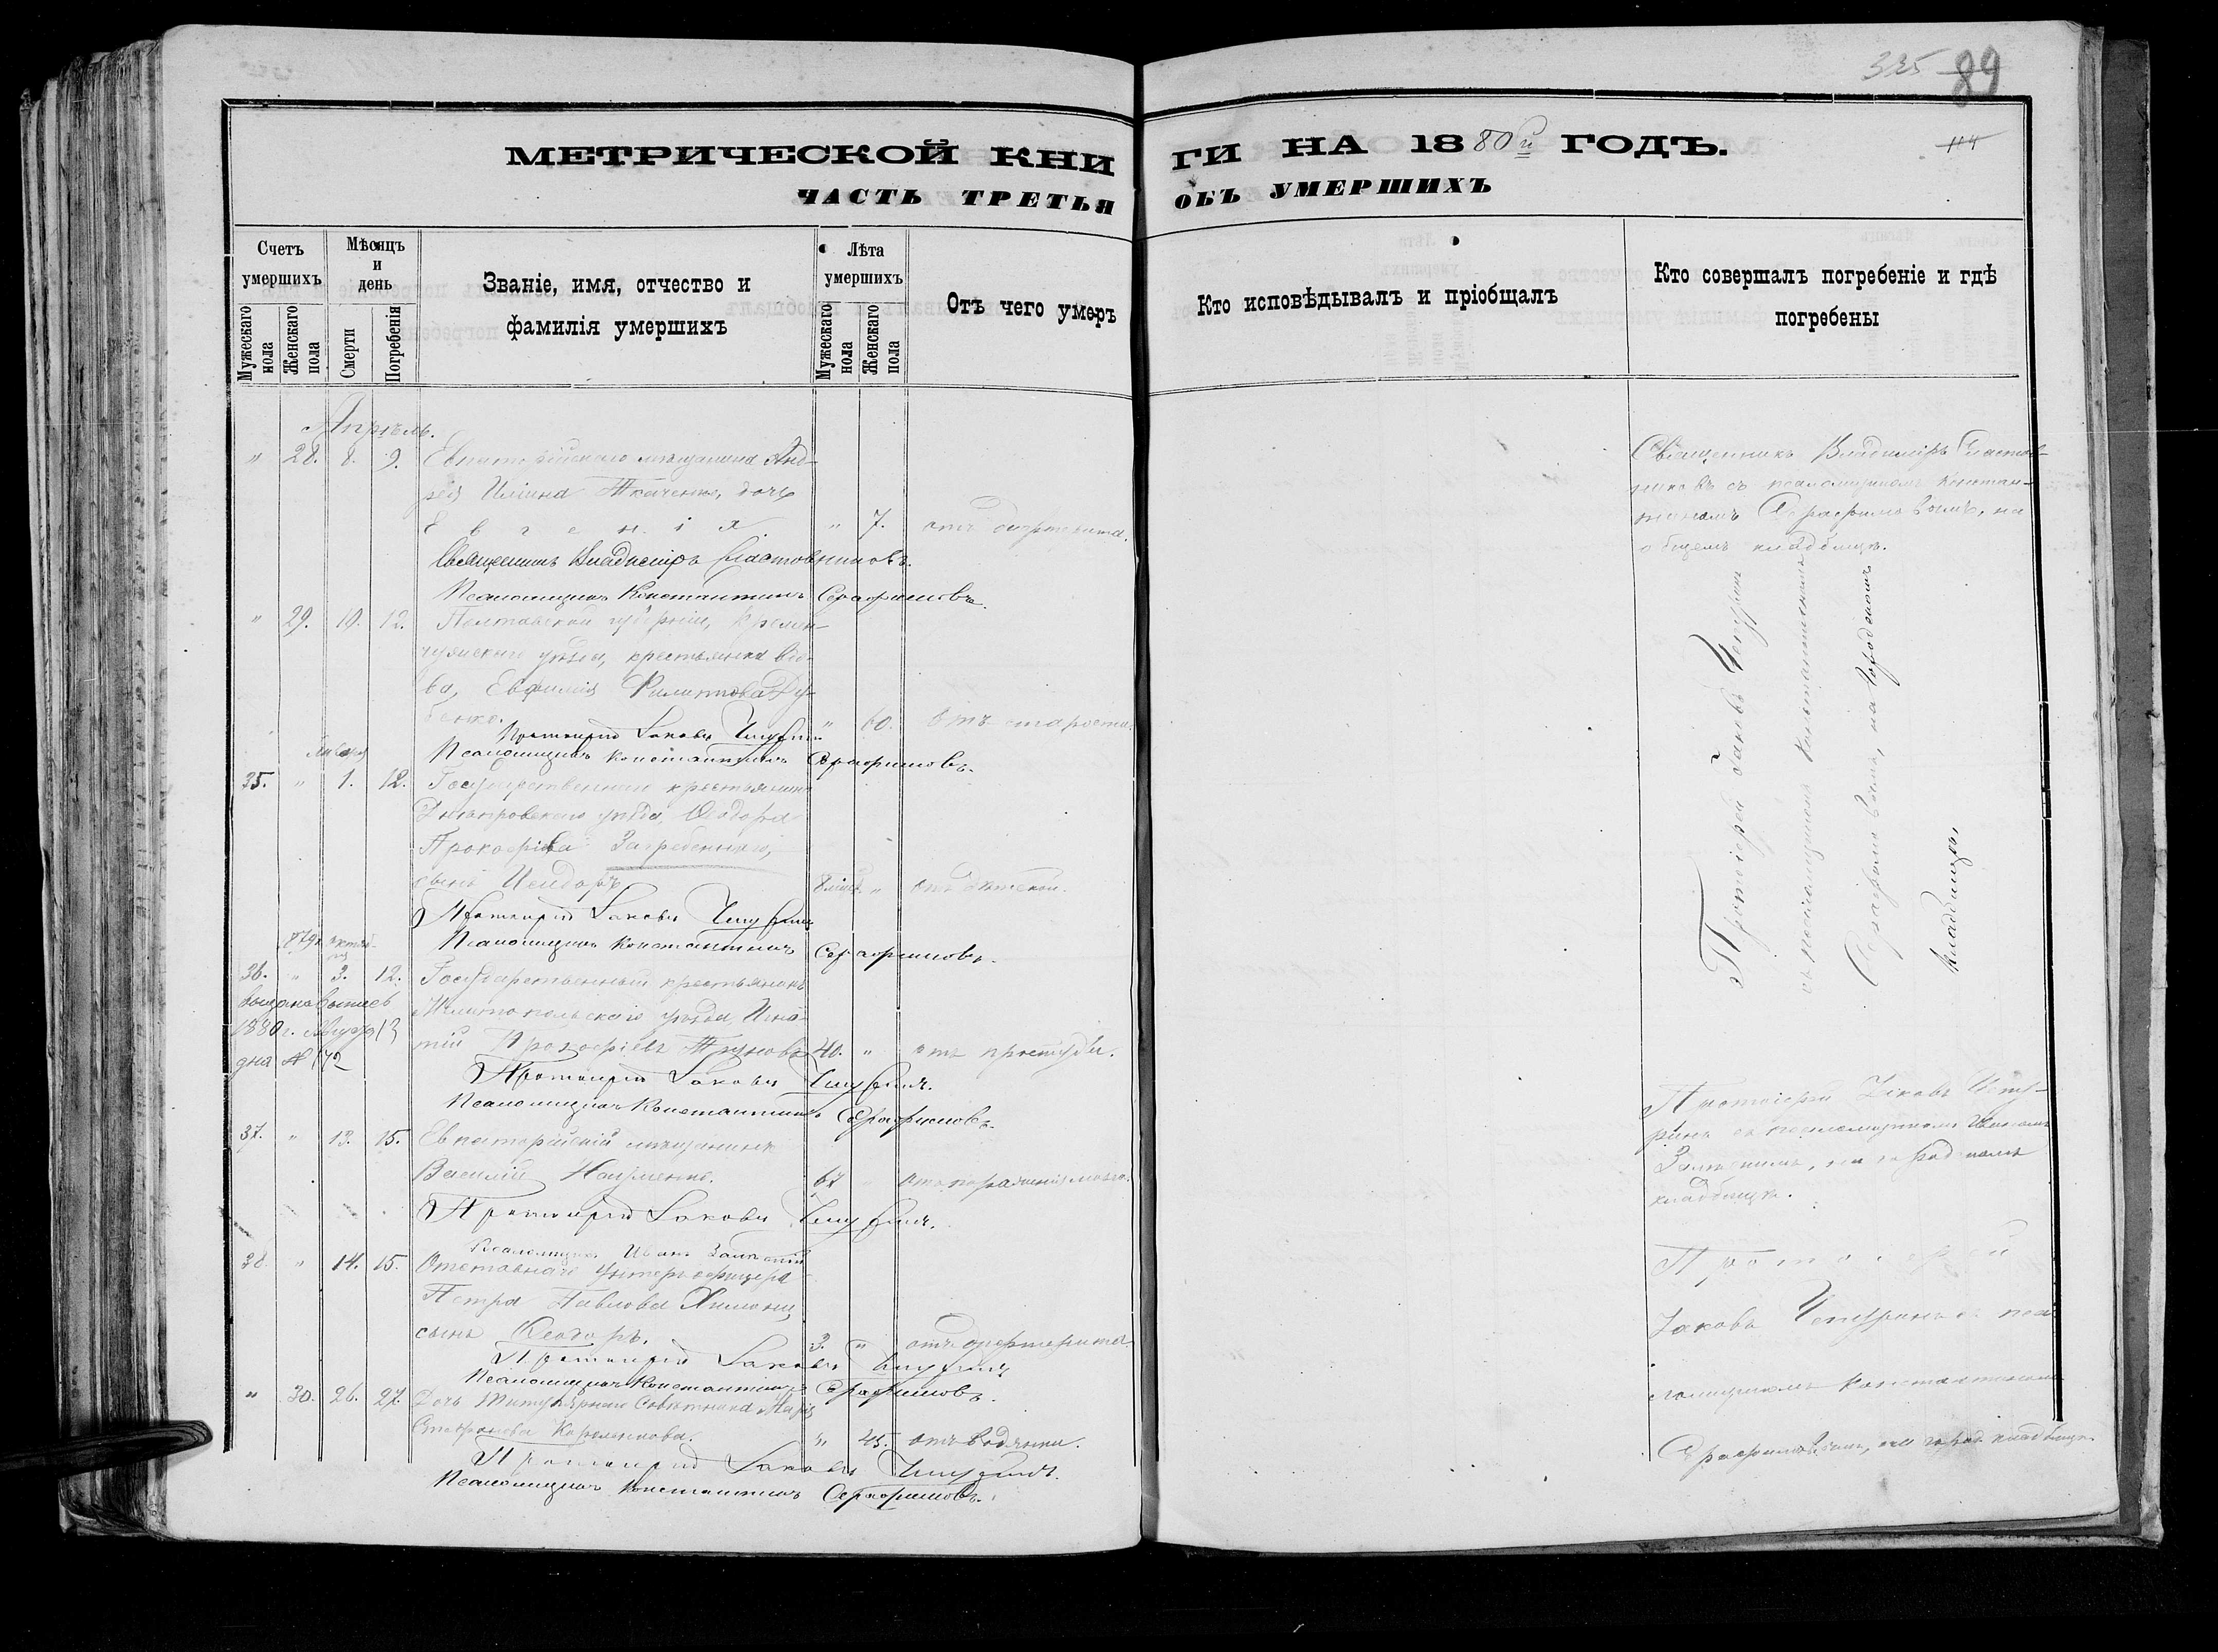 325 89
114
МЕТРИЧЕСКОЙ КНИГИ НА 1880й ГОДЪ.
ЧАСТЬ ТРЕТЬЯ ОБЪ УМЕРШИХЪ
Счетъ умершихъ
Мужескаго пола
Женскаго пола
Мѣсяцъ и день
Смерти
Погребенія
Званіе, имя, отчество и фамилія умершихъ
Лѣта умершихъ
Мужескаго пола
Женскаго пола
Отъ чего умеръ
Кто исповѣдывалъ и пріобщалъ
Кто совершалъ погребеніе и гдѣ погребены
Апрѣль.
" 28. 8. 9. Евпаторійскаго мѣщанина Анд-
рея Ильина Ткаченко, дочь
Евгенія " 7. отъ дифтерита.
Священникъ Владиміръ Сластовниковъ.
Псаломщикъ Константинъ Серафимовъ.
Священникъ Владиміръ Сластов-
никовъ съ псаломщикомъ Констан-
тиномъ Серафимовымъ, на
общемъ кладбищѣ.
" 29. 10. 12. Полтавской губерніи, Кремен-
чугскаго уѣзда, крестьянка вдо-
ва, Евфимія Филиппова
" 60. отъ старости.
Протоіерей Іаковъ Чепуринъ
Псаломщикъ Константинъ Серафимовъ.
Января
35. " 1. 12. Государственнаго крестьянина
Днѣпровскаго уѣзда, Ѳеодора
Прокофіева Загребеннаго,
сынъ Исидоръ " отъ
Протоіерей Іаковъ Чепуринъ
Псаломщикъ Константинъ Серафимовъ.
879г. октяб-
36. " 3. 12. Государственный крестьянинъ
Мелитопольскаго уѣзда, Игна-
тій Прокофіевъ 40. " отъ простуды.
1880 г. 13
дня № 172
Протоіерей Іаковъ Чепуринъ.
Псаломщикъ Константинъ Серафимовъ.
Протоіерей Іаковъ Чепуринъ
съ псаломщикомъ Константиномъ
Серафимовымъ, на городскомъ
кладбищѣ.
37. " 13. 15. Евпаторійскій мѣщанинъ
Василій Науменко. 67 " отъ пораженія мозга.
Протоіерей Іаковъ Чепуринъ.
Псаломщикъ Иванъ
Протоіерей Іаковъ Чепу-
ринъ съ псаломщикомъ Иваномъ
на городскомъ
кладбищѣ.
38. " 14. 15. Отставнаго унтеръ офицера
Петра Павлова
сынъ Ѳеодоръ. 3. " отъ дифтерита.
Протоіерей Іаковъ Чепуринъ
Псаломщикъ Константинъ Серафимовъ.
" 30. 26. 27. Дочь Титулярнаго Совѣтника Марія
Стефанова " 45. отъ водянки.
Протоіерей Іаковъ Чепуринъ.
Псаломщикъ Константинъ Серафимовъ.
Протоіерей
Іаковъ Чепуринъ съ пса-
ломщикомъ Константиномъ
Серафимовымъ, на город. кладбищѣ.